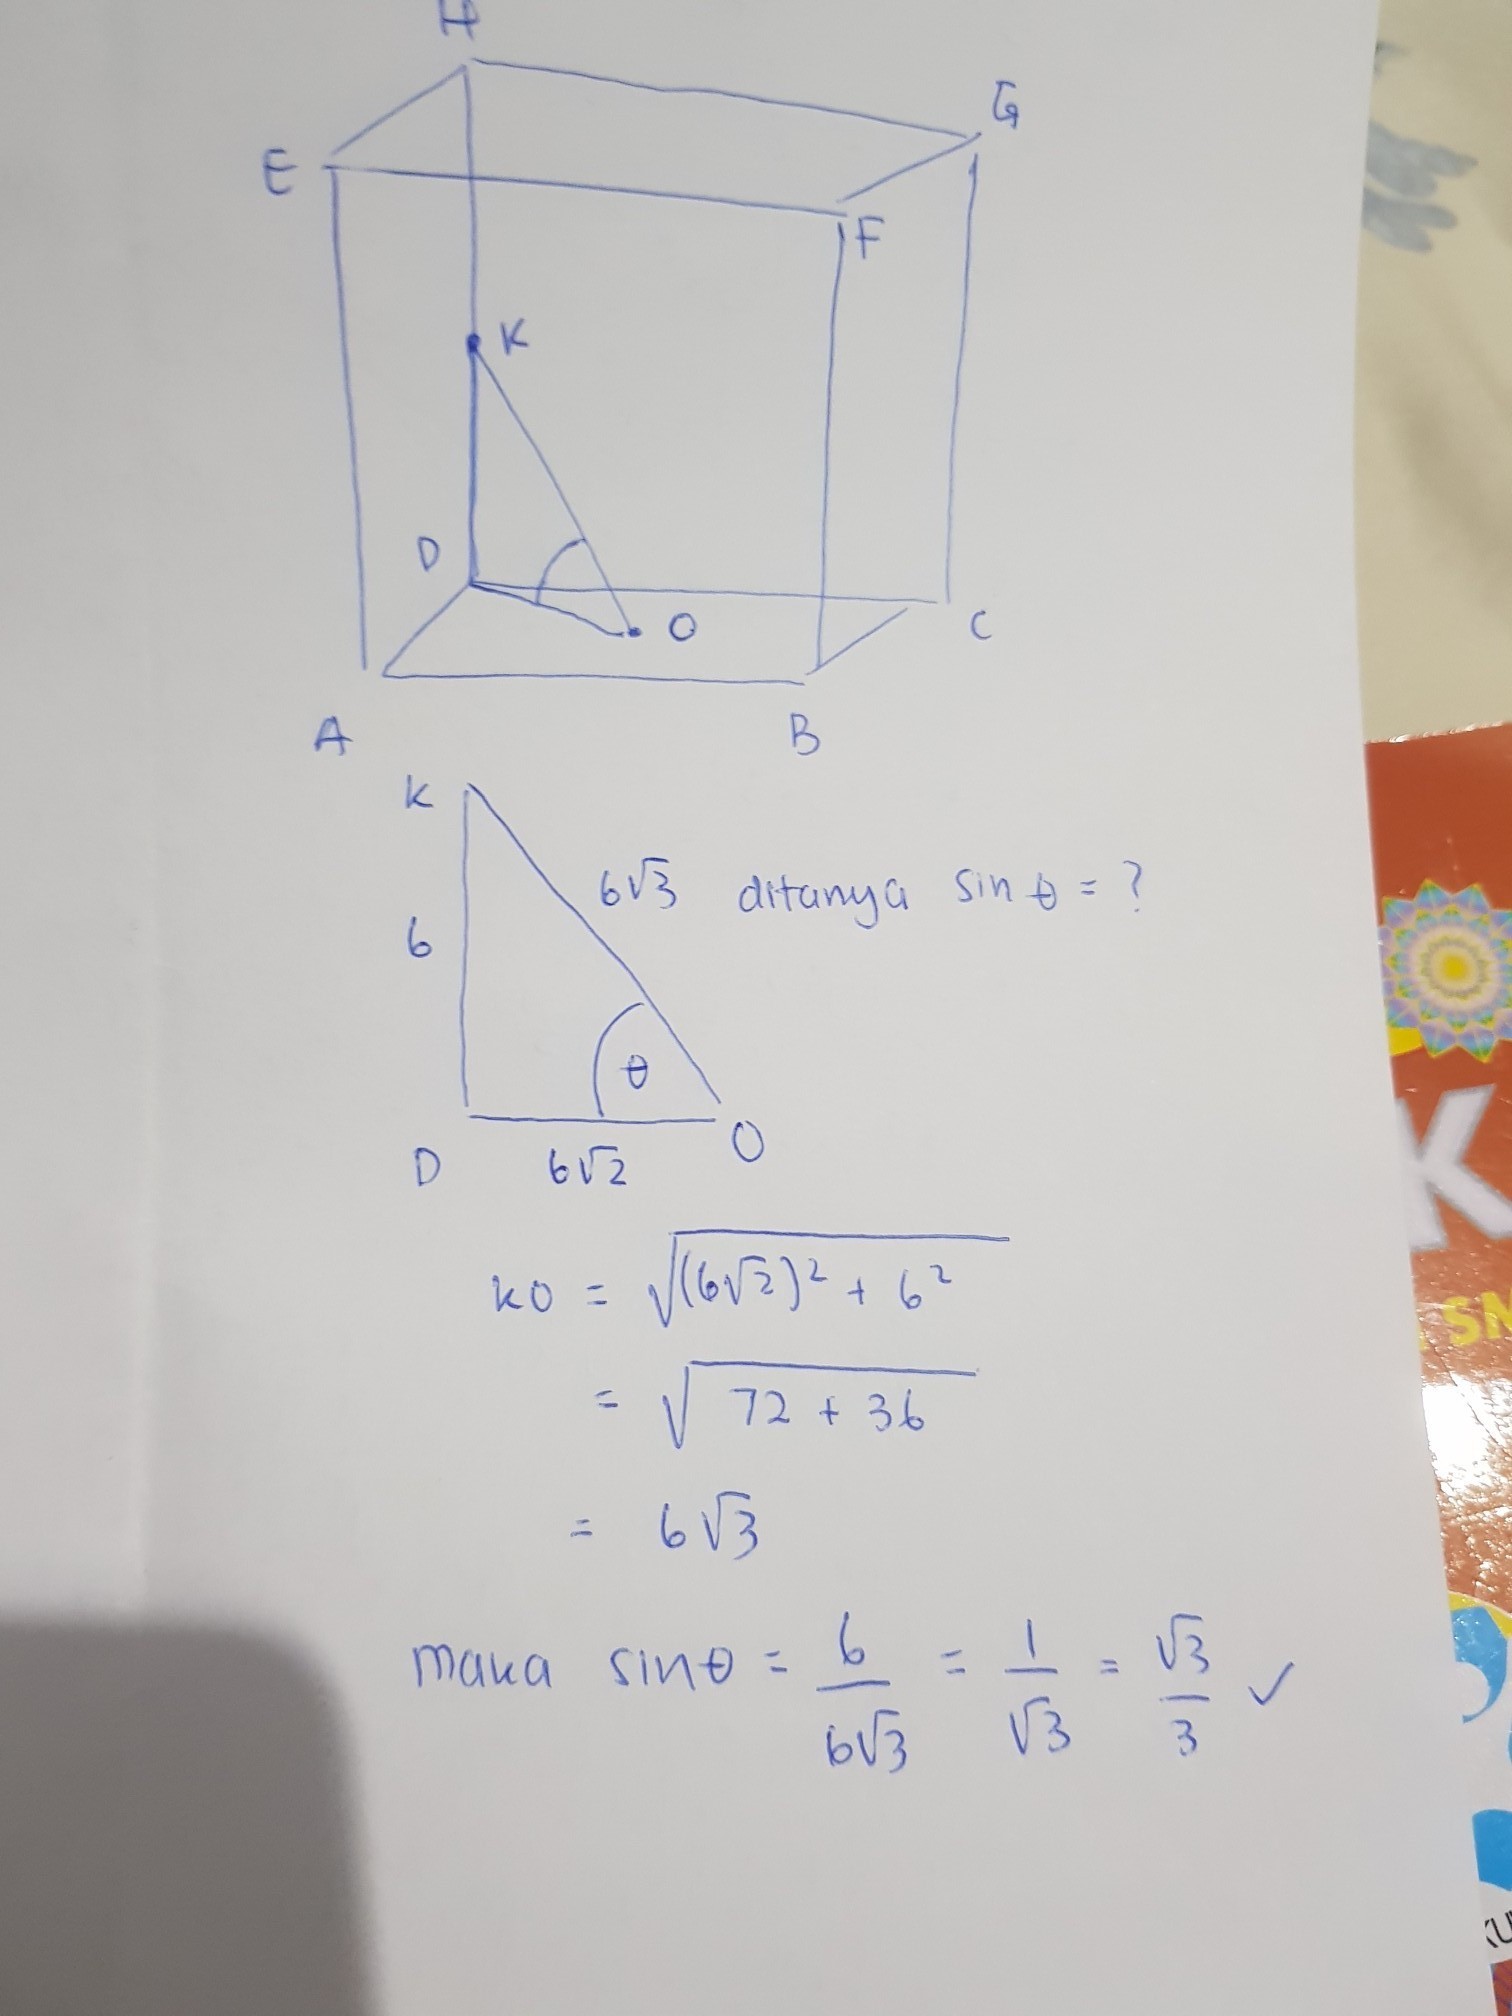 H
G
E
F
K
D
O
C
A
B
K
6√3 ditanya sin θ = ?
6
θ
D
6√2
O
KO = √(6√2)² + 6²
= √72 + 36
= 6√3
maka sin θ = 6/6√3 = 1/√3 = √3/3 ✓
K
SM
KU